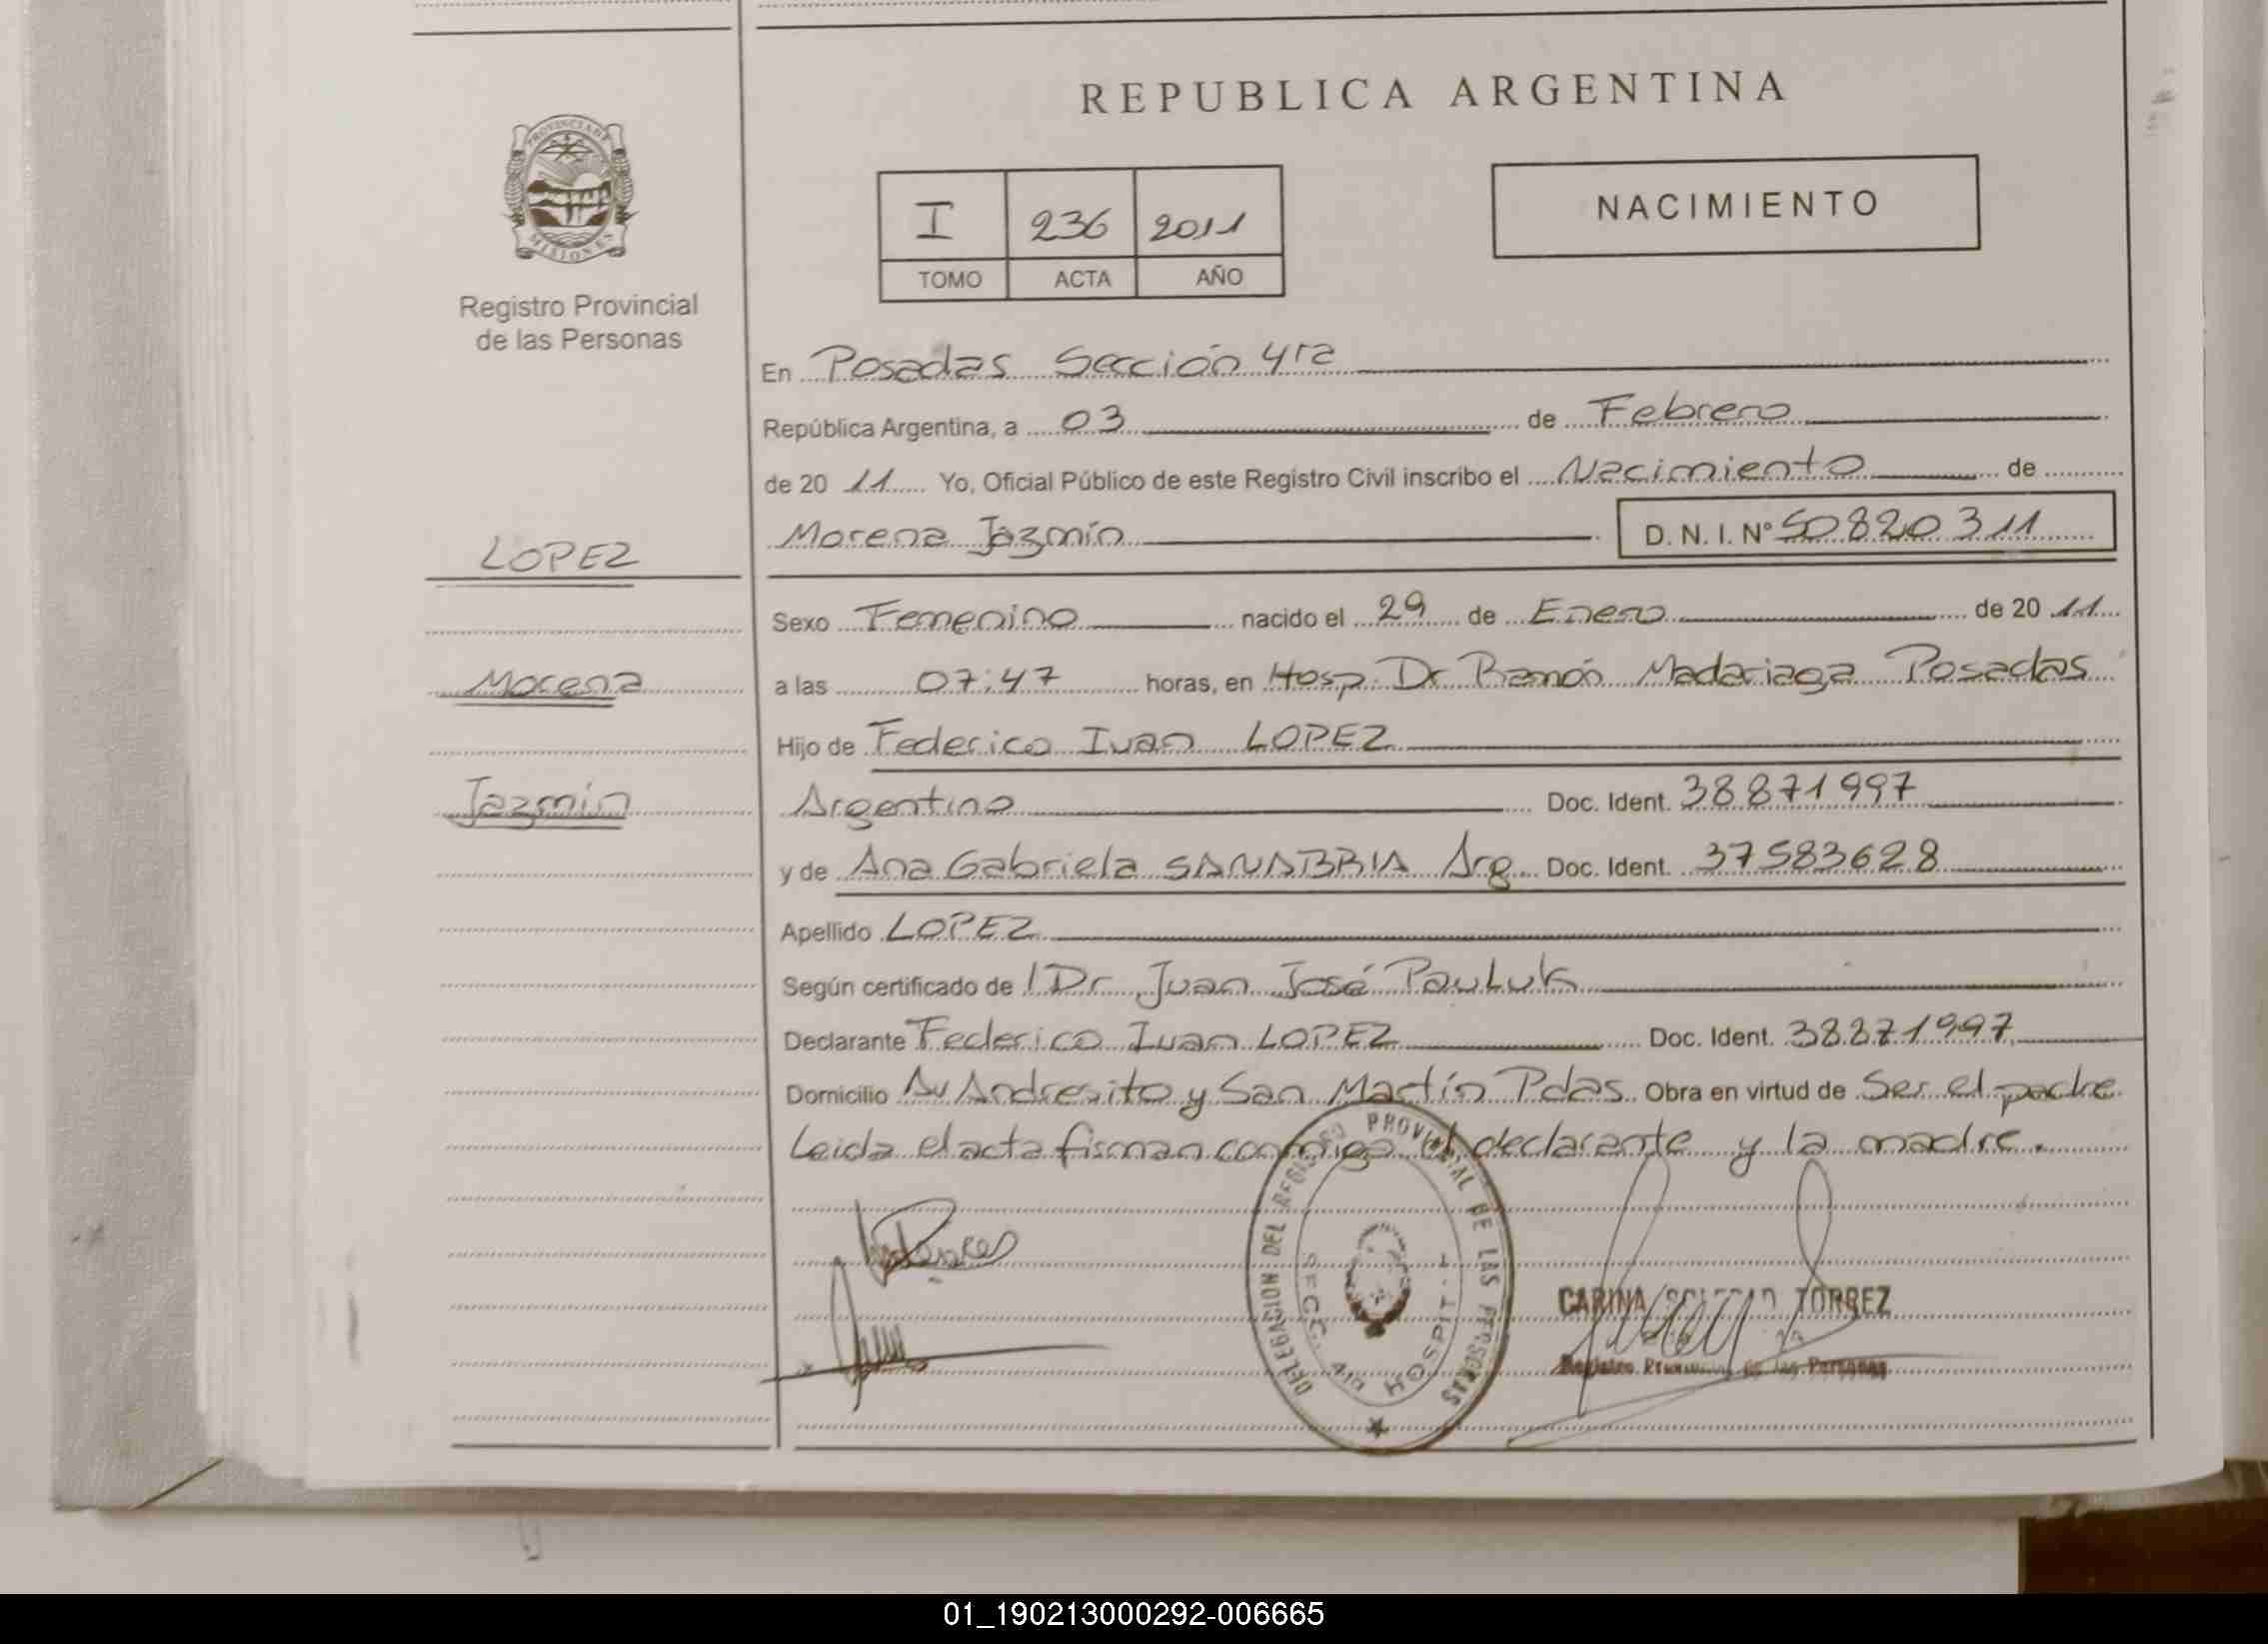 REPUBLICA ARGENTINA
PROVINCIA DE
MISIONES
Registro Provincial
de las Personas
I 236 2011
TOMO ACTA AÑO
NACIMIENTO
En Posadas Sección 4ta
República Argentina, a 03 de Febrero
de 20 11 Yo, Oficial Público de este Registro Civil inscribo el Nacimiento de
LOPEZ
Morena Jazmín D. N. I. Nº 50820311
Sexo Femenino nacido el 29 de Enero de 20 11
Morena
a las 07:47 horas, en Hosp. Dr Ramón Madariaga Posadas
Hijo de Federico Ivan LOPEZ
Jazmín
Argentino Doc. Ident. 38871997
y de Ana Gabriela SANABRIA Arg Doc. Ident. 37583628
Apellido LOPEZ
Según certificado de l Dr Juan José Pauluk
Declarante Federico Ivan LOPEZ Doc. Ident. 38871997
Domicilio Av Andresito y San Martín Pdas Obra en virtud de Ser el padre
Leida el acta firman conmigo el declarante y la madre.
DELEGACION DEL REGISTRO PROVINCIAL DE LAS PERSONAS
SECC. 4ta HOSPIT.
CARINA SOLEDAD TORREZ
Registro Provincial de las Personas
01_190213000292-006665